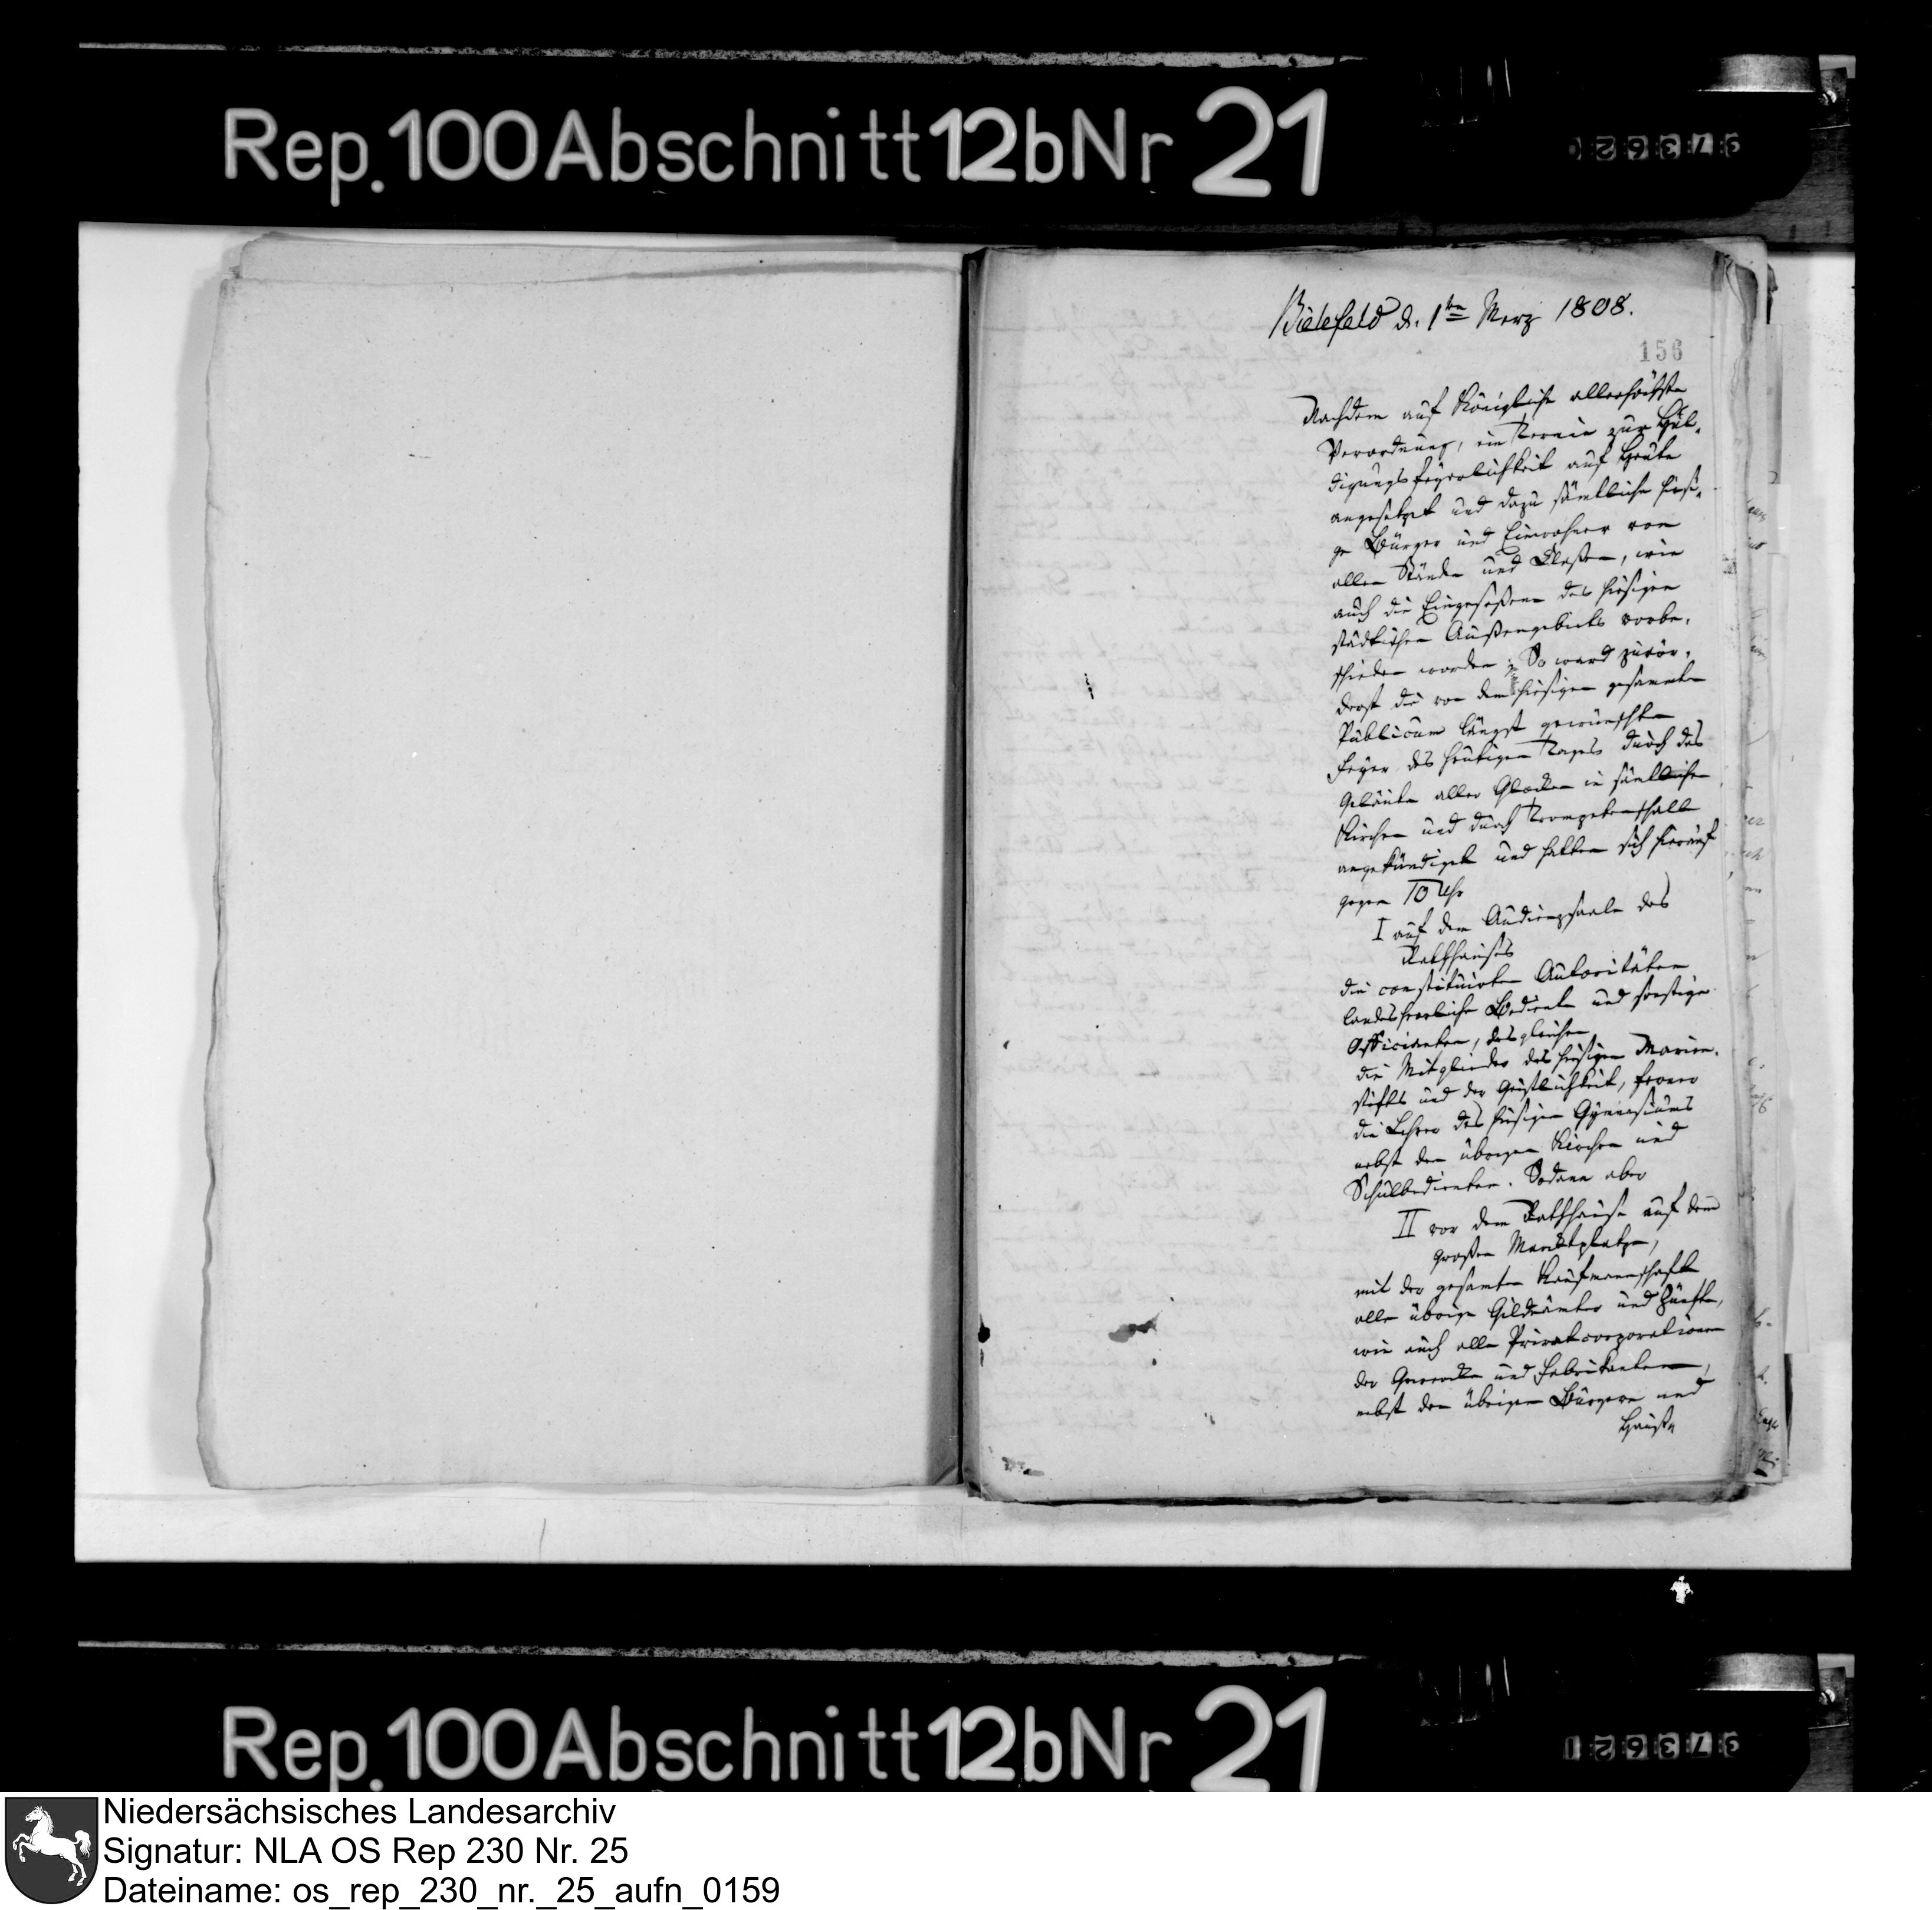 Rep.100Abschnitt12bNr 21
Bielefeld d. 1ten Merz 1808.
156
Nachdem auf Königliche allerhöchste
Verordnung, ein Termin zur Hul-
digungsfeyerlichkeit auf Heute
angesetzet und dazu sämtliche hiesi-
ge Bürger und Einwohner von
allen Stände und Claßen, wie
auch die Eingeseßene des hiesigen
städtischen Außengebiets vorbe-
schieden worden; So ward zuvör-
derst die von dem hiesigen gesammten
Publicum längst gewünschte
Feyer des heutigen Tages durch das
Geläute aller Glocken in sämtlichen
Kirchen und durch Trompetenschall
angekündiget und hatten sich hierauf
gegen 10 Uhr
I auf dem Audienzsaale des
Rathhauses
die constituirten Autoritäten
landesherrliche Bediente und sonstige
Officianten, desgleichen
die Mitglieder des hiesigen Marien-
stifts und der Geistlichkeit, ferner
die Lehrer des hiesigen Gymnasiums
nebst den übrigen Kirchen und
Schulbedienten. Sodann aber
II vor dem Rathhause auf dem
großen Marcktplatze,
mit der gesamten Kaufmannschaft
alle übrige Gildeämter und Zünfte,
wie auch alle Privatcorporationen
der Gewercke und Fabrikanten,
nebst den übrigen Bürgern und
Hauß-
Rep.100Abschnitt12bNr 21
Niedersächsisches Landesarchiv
Signatur: NLA OS Rep 230 Nr. 25
Dateiname: os_rep_230_nr._25_aufn_0159